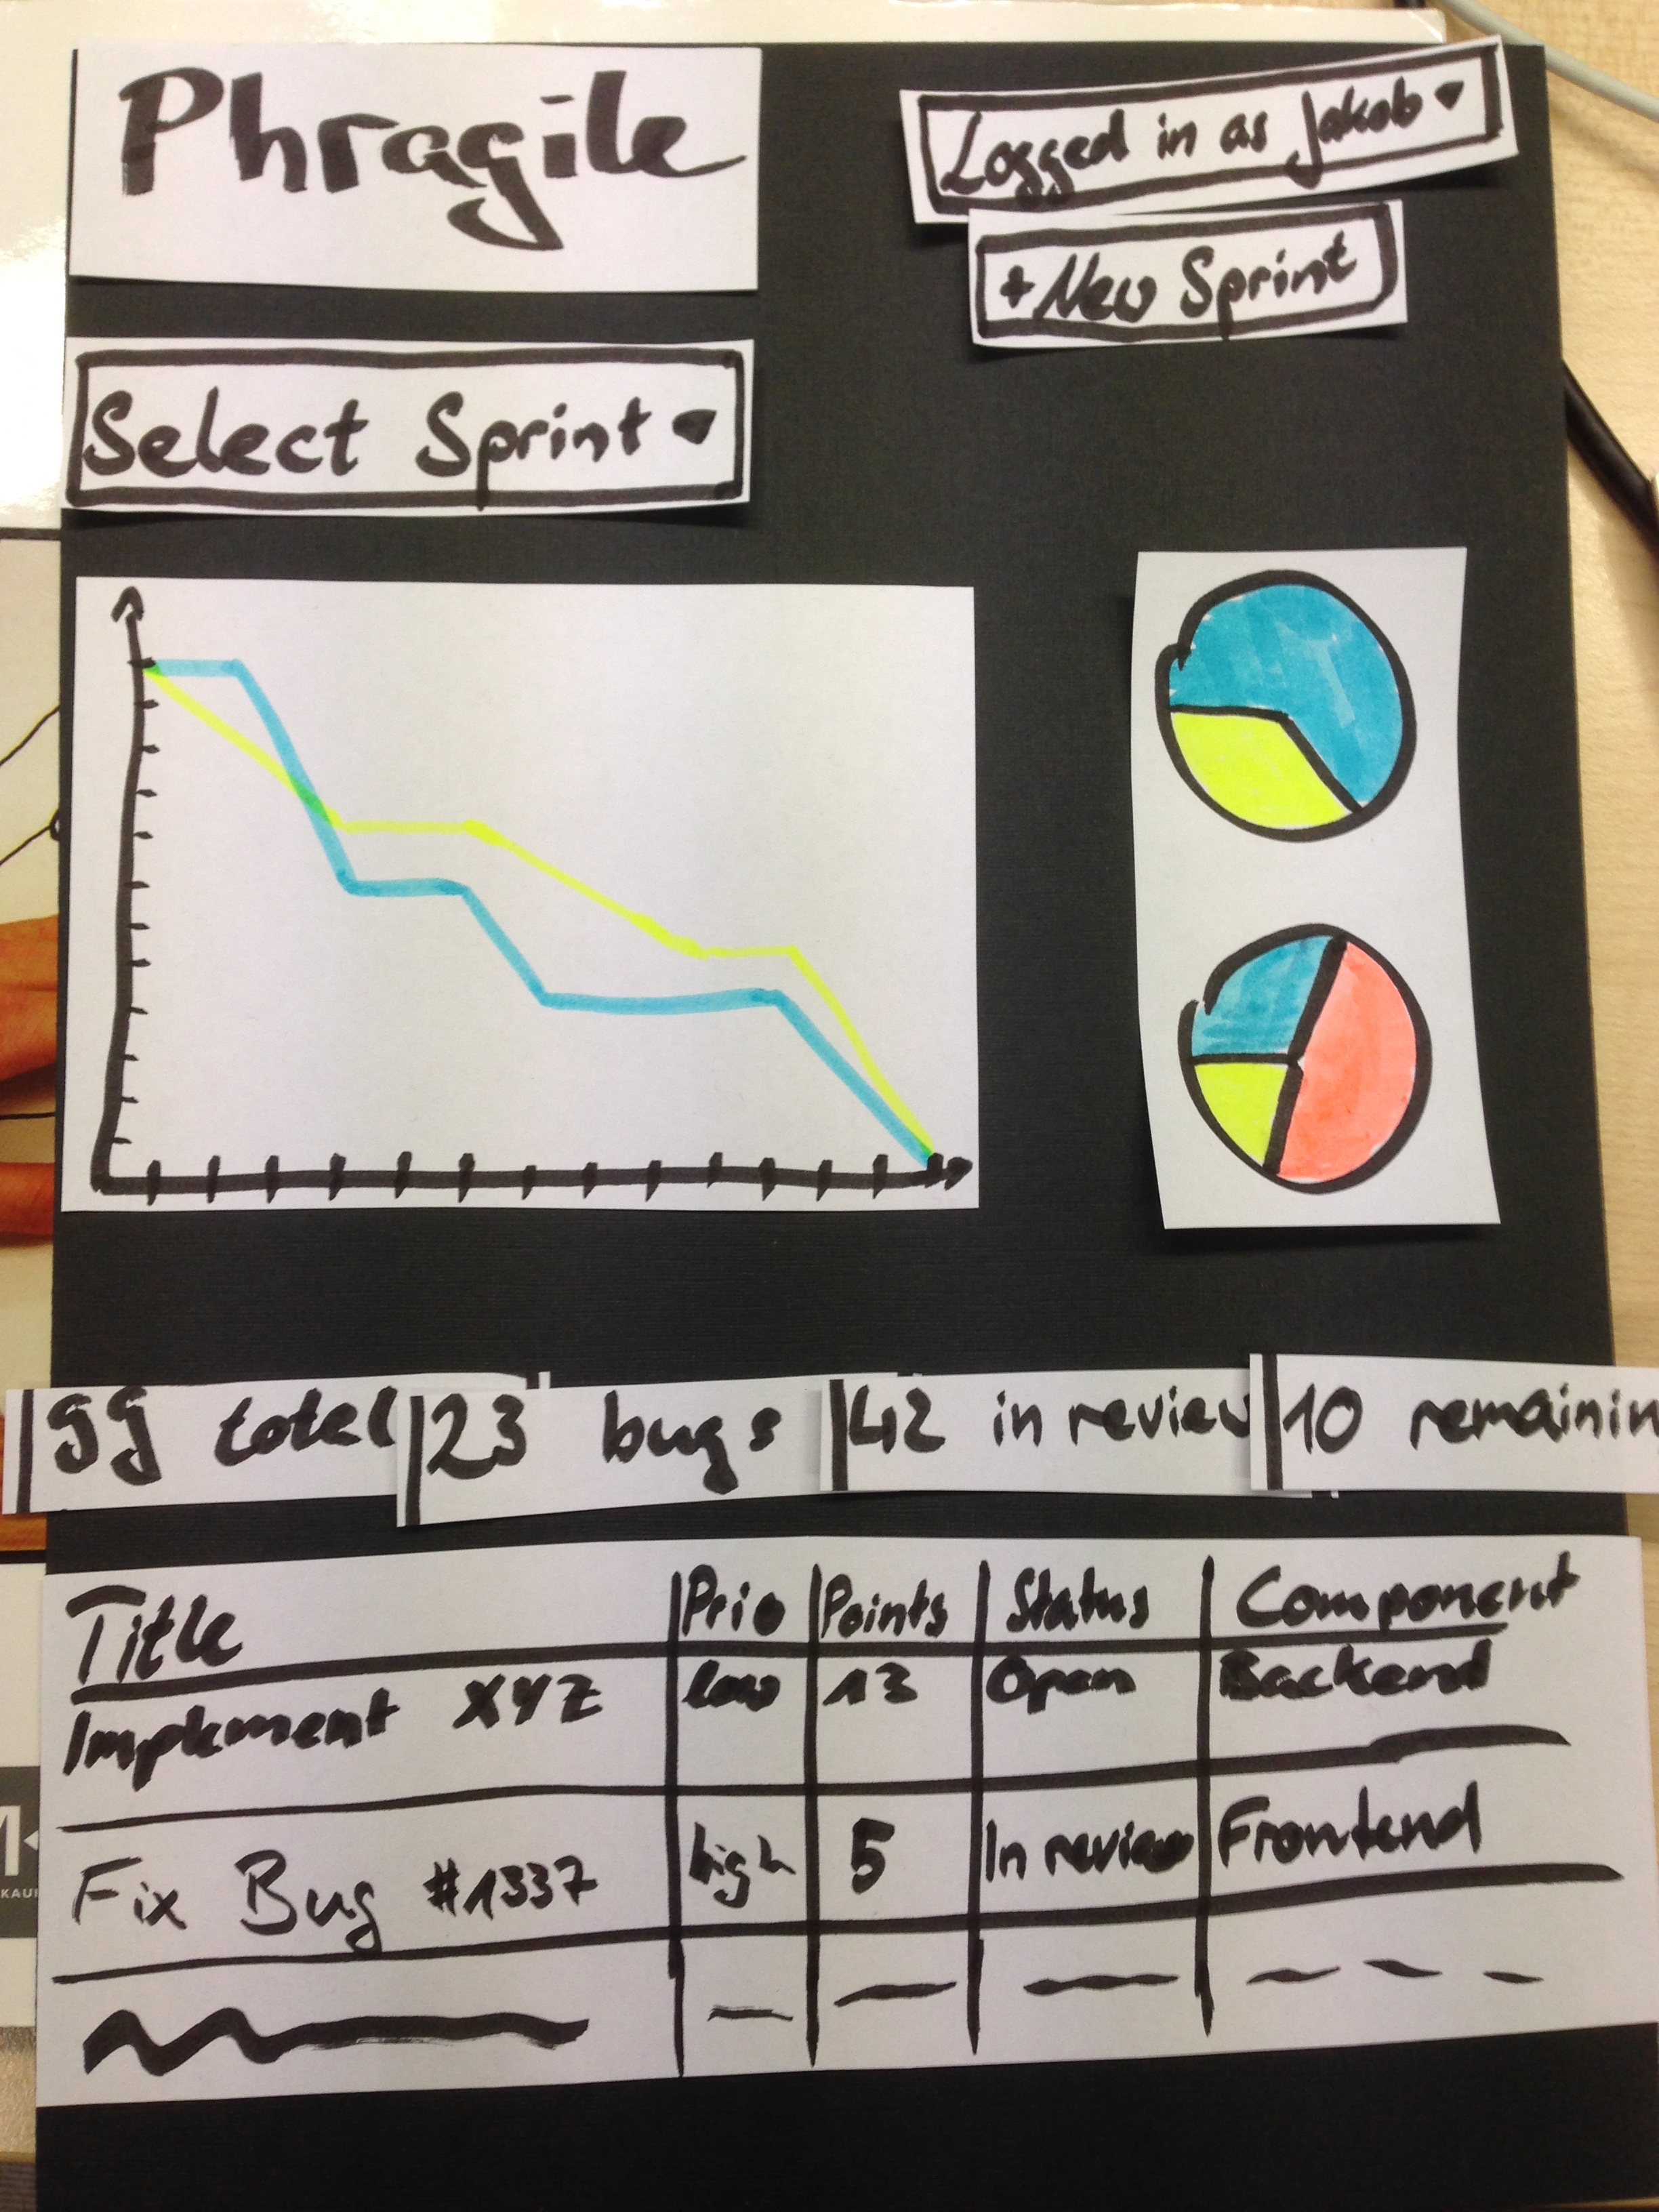 Phragile
Logged in as Jakob
+ New Sprint
Select Sprint
99 total
23 bugs
42 in review
10 remainin
Title Prio Points Status Component
Implement XYZ low 13 Open Backend
Fix Bug #1337 high 5 In review Frontend